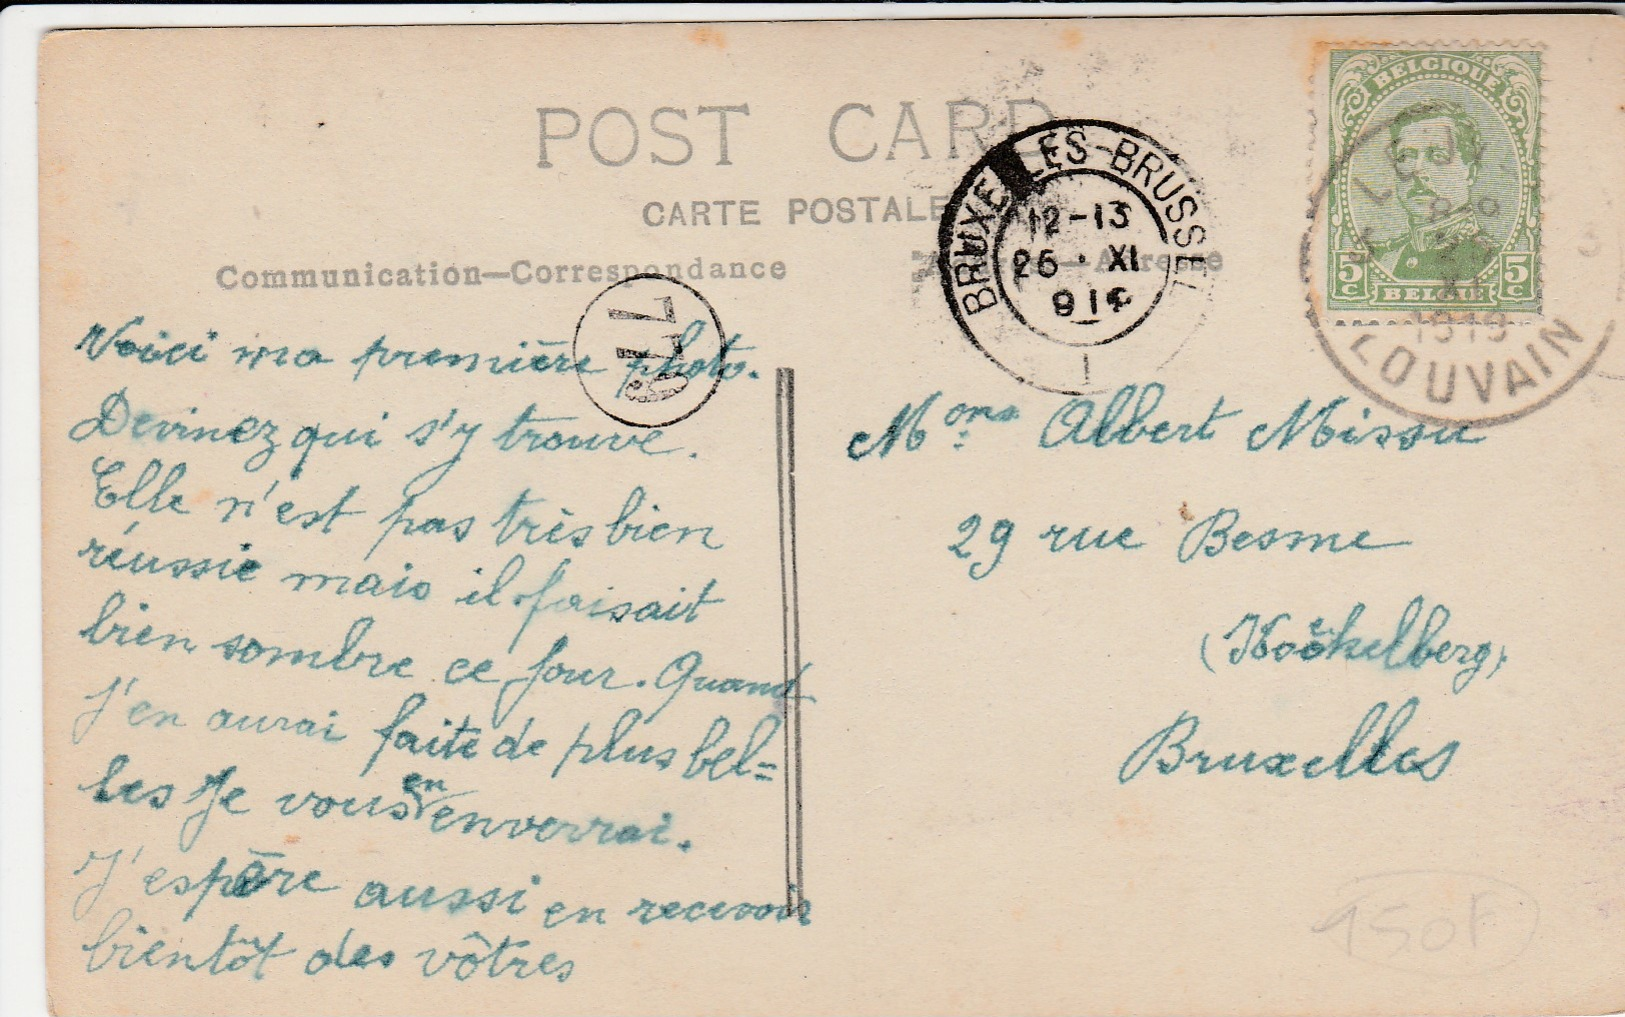 POST CARD
CARTE POSTALE
Communication—Correspondance
Adresse
BELGIQUE
5c 5c
BELGIE
BRUXELLES-BRUSSEL
12-13
26 · XI
1
1919
LOUVAIN
779
Voici ma première photo.
Devinez qui s'y trouve.
Elle n'est pas très bien
réussie mais il faisait
bien sombre ce jour. Quand
j'en aurai faite de plus bel=
les je vous en enverrai.
J'espère aussi en recevoir
bientôt des vôtres
Mons. Albert Missu
29 rue Besme
(Koekelberg)
Bruxelles
150F